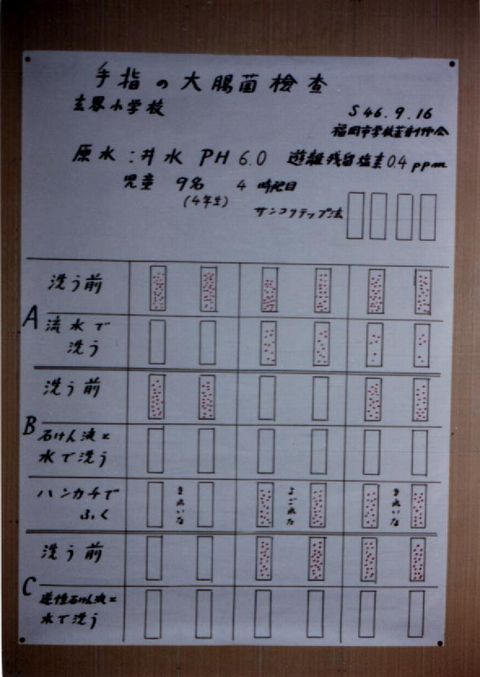 手指の大腸菌検査
玄界小学校
S 46.9.16
福岡市学校薬剤師会
原水:井水 PH 6.0 遊離残留塩素0.4 ppm
児童 9名 4時間目
(4年生)
サンコリテップ法
A
洗う前
流水で
洗う
B
洗う前
石けん液と
水で洗う
ハンカチで
ふく
きれいな
よごれた
きれいな
C
洗う前
逆性石けん液と
水で洗う